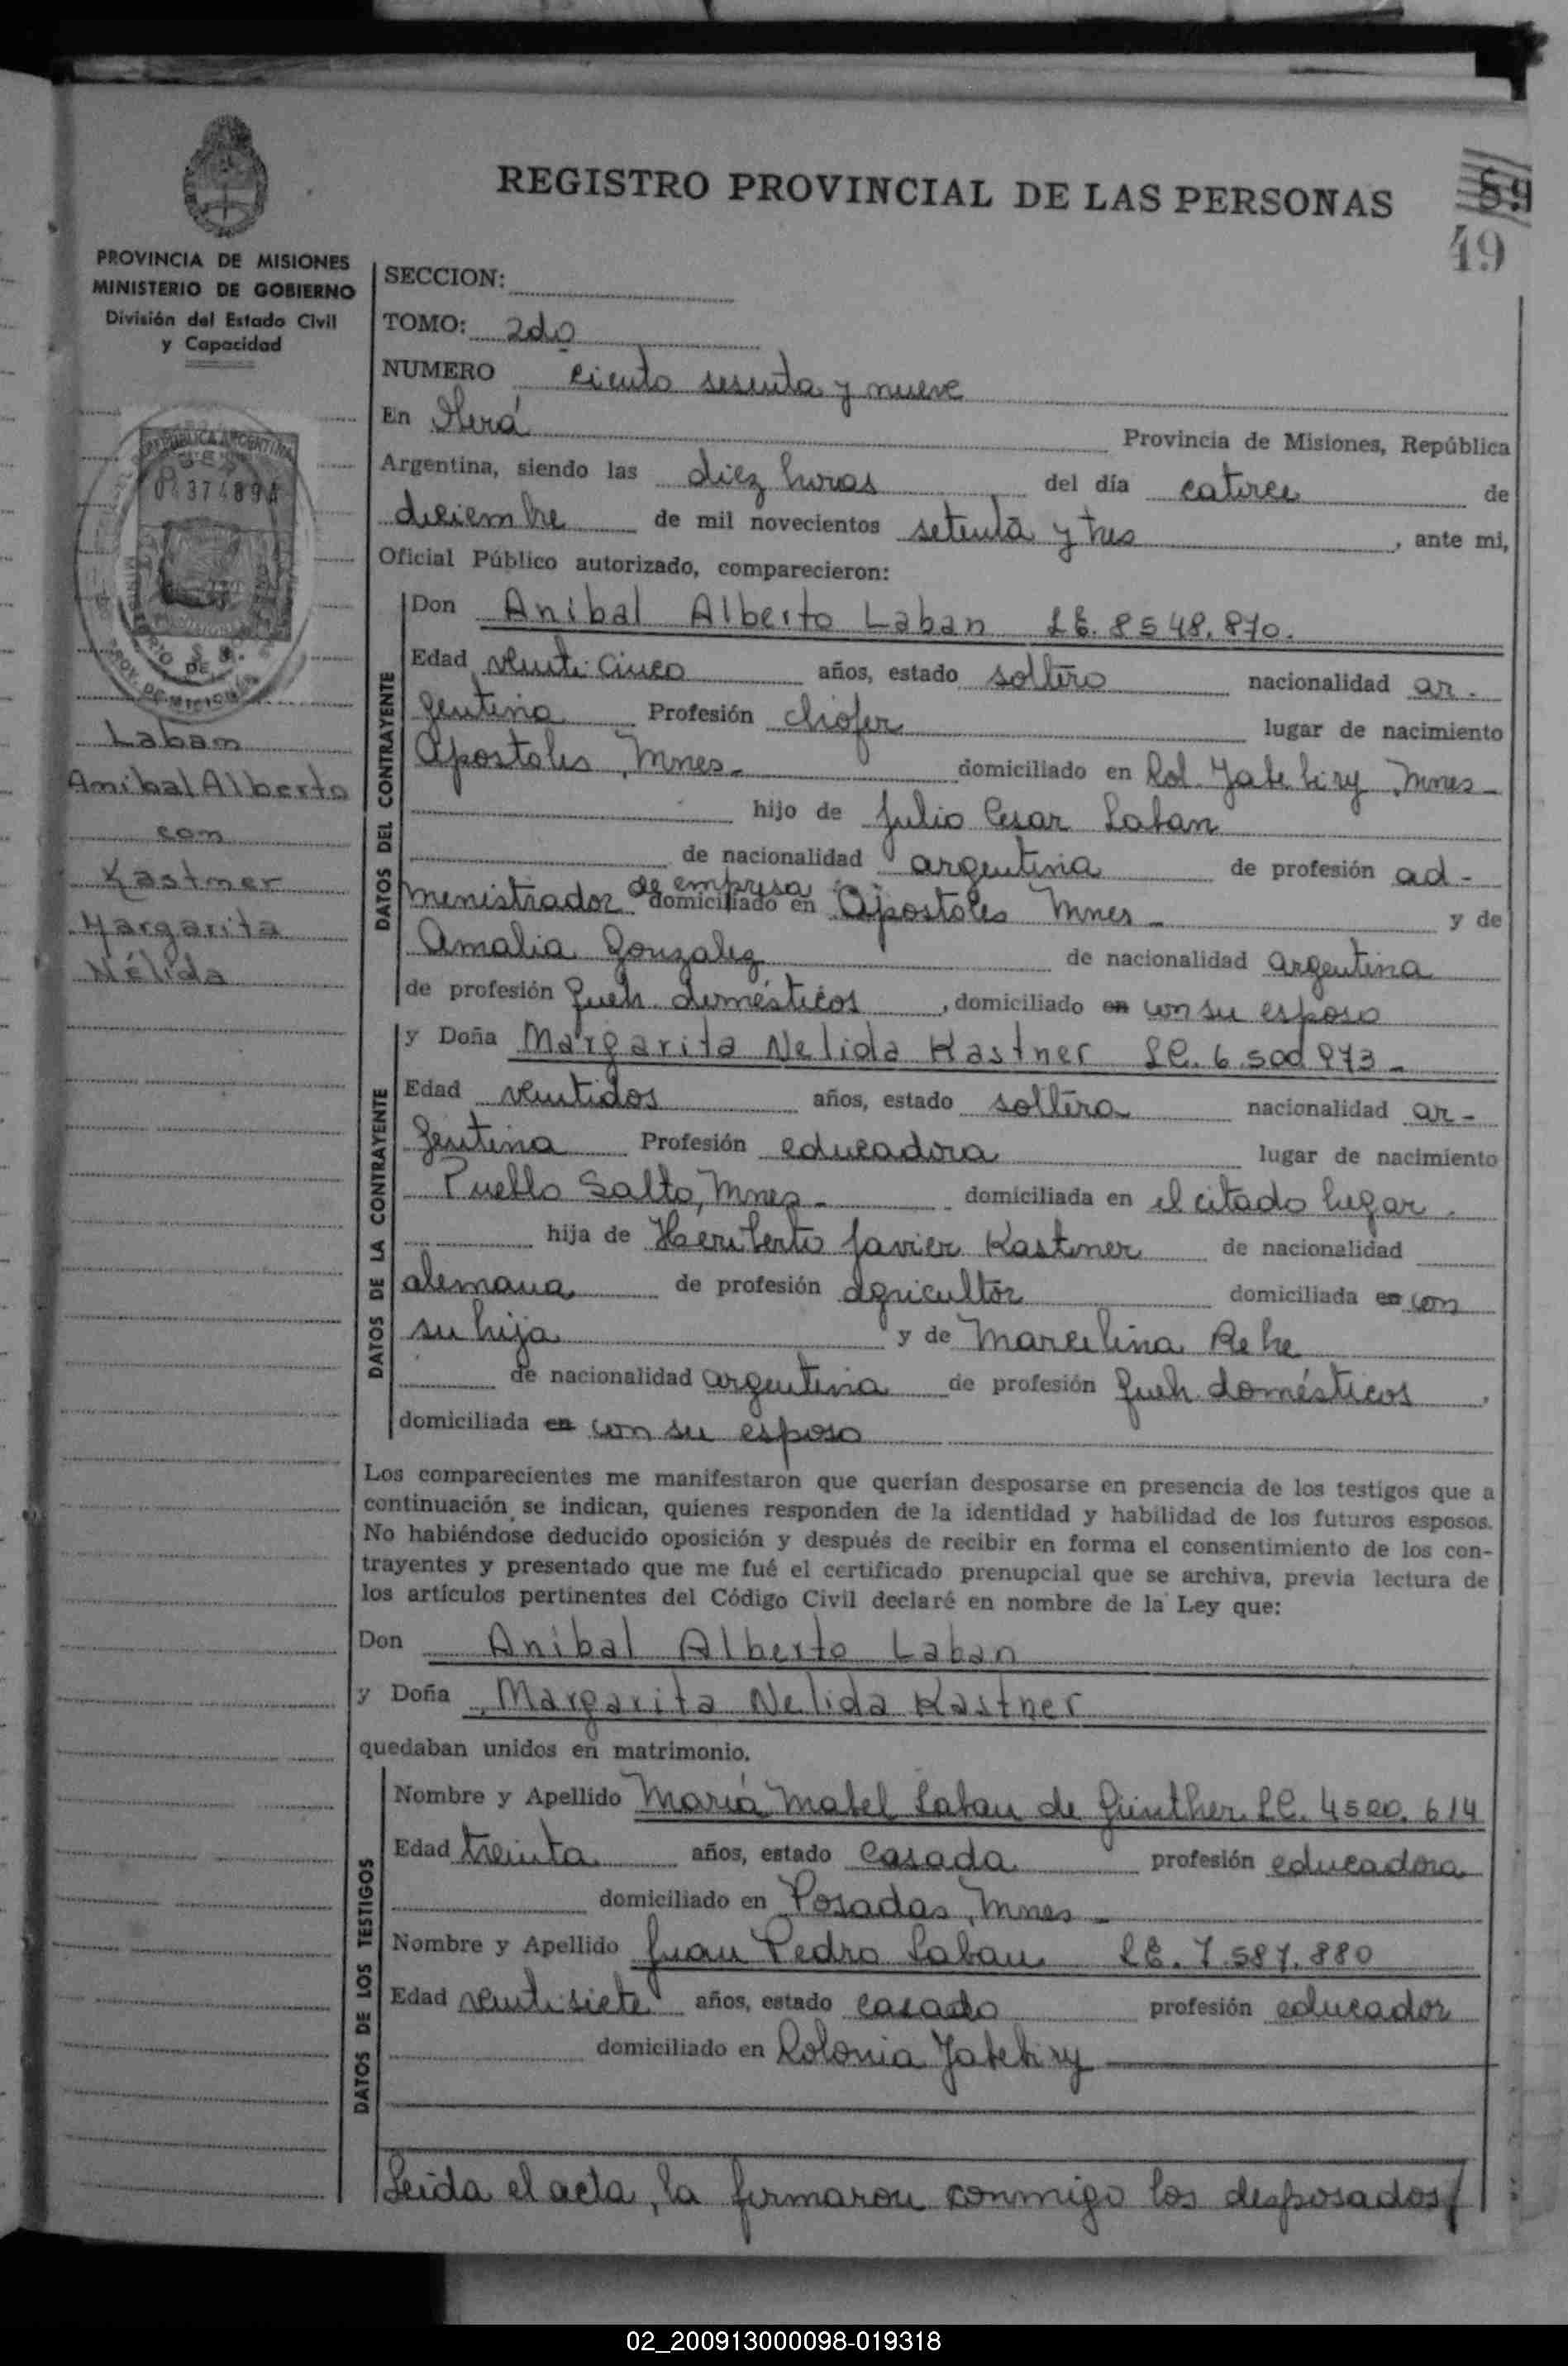 REGISTRO PROVINCIAL DE LAS PERSONAS
59
49
PROVINCIA DE MISIONES
MINISTERIO DE GOBIERNO
División del Estado Civil
y Capacidad
REPUBLICA ARGENTINA
Laban
Anibal Alberto
con
Kastner
Margarita
Nélida
SECCION:
TOMO: 2do
NUMERO ciento sesenta y nueve
En Oberá Provincia de Misiones, República
Argentina, siendo las diez horas del día catorce de
diciembre de mil novecientos setenta y tres, ante mi,
Oficial Público autorizado, comparecieron:
DATOS DEL CONTRAYENTE
Don Anibal Alberto Laban LE. 8548.870.
Edad veinticinco años, estado soltero nacionalidad ar-
gentina Profesión chofer lugar de nacimiento
Apostoles, Mnes- domiciliado en Col. Yabebiry, Mnes-
hijo de Julio Cesar Laban
de nacionalidad argentina de profesión ad-
ministrador de empresa domiciliado en Apostoles Mnes- y de
Amalia Gonzalez de nacionalidad argentina
de profesión queh. domésticos, domiciliado en con su esposo
DATOS DE LA CONTRAYENTE
y Doña Margarita Nelida Kastner LC. 6.500 973-
Edad veintidos años, estado soltera nacionalidad ar-
gentina Profesión educadora lugar de nacimiento
Pueblo Salto, Mnes- domiciliada en el citado lugar.
hija de Heriberto Javier Kastner de nacionalidad
alemana de profesión agricultor domiciliada en con
su hija y de Marcelina
de nacionalidad argentina de profesión queh domésticos,
domiciliada en con su esposo
Los comparecientes me manifestaron que querían desposarse en presencia de los testigos que a
continuación se indican, quienes responden de la identidad y habilidad de los futuros esposos.
No habiéndose deducido oposición y después de recibir en forma el consentimiento de los con-
trayentes y presentado que me fué el certificado prenupcial que se archiva, previa lectura de
los artículos pertinentes del Código Civil declaré en nombre de la Ley que:
Don Anibal Alberto Laban
y Doña Margarita Nelida Kastner
quedaban unidos en matrimonio.
DATOS DE LOS TESTIGOS
Nombre y Apellido María Mabel Laban de Günther LC. 4500. 614
Edad treinta años, estado casada profesión educadora
domiciliado en Posadas, Mnes-
Nombre y Apellido Juan Pedro Laban LE. 7.587.880
Edad veintisiete años, estado casado profesión educador
domiciliado en Colonia Yabebiry
Leída el acta, la firmaron conmigo los desposados/
02_200913000098-019318